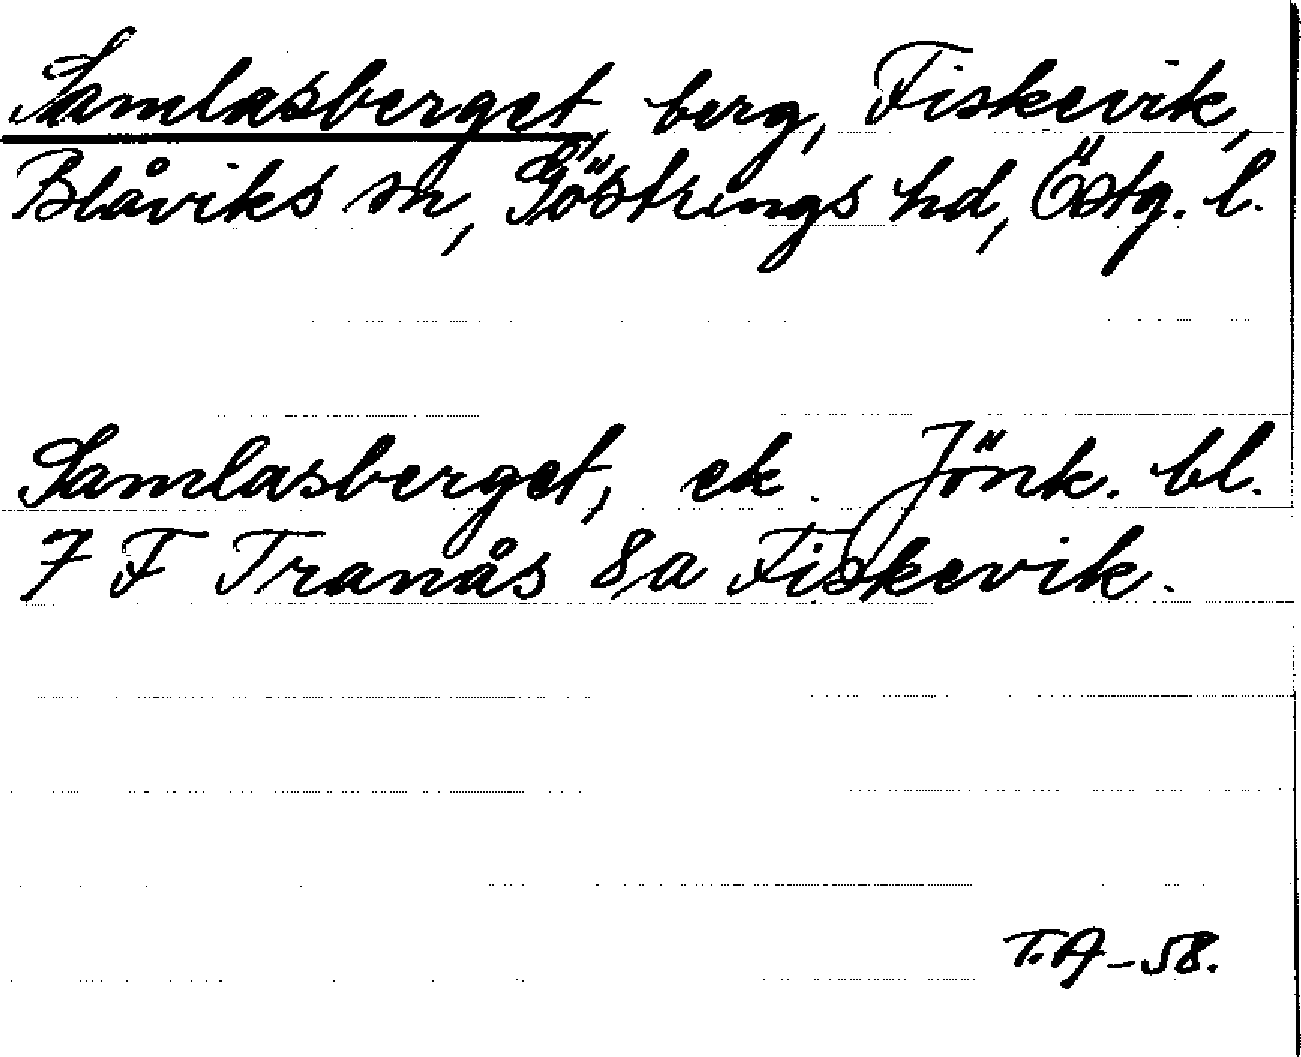 Samlasberget, berg, Fiskevik,
Blåviks sn, Göstrings hd, Östg. l.
Samlasberget, ek. Jönk. bl.
7 F Tranås 8a Fiskevik.
T.A-58.